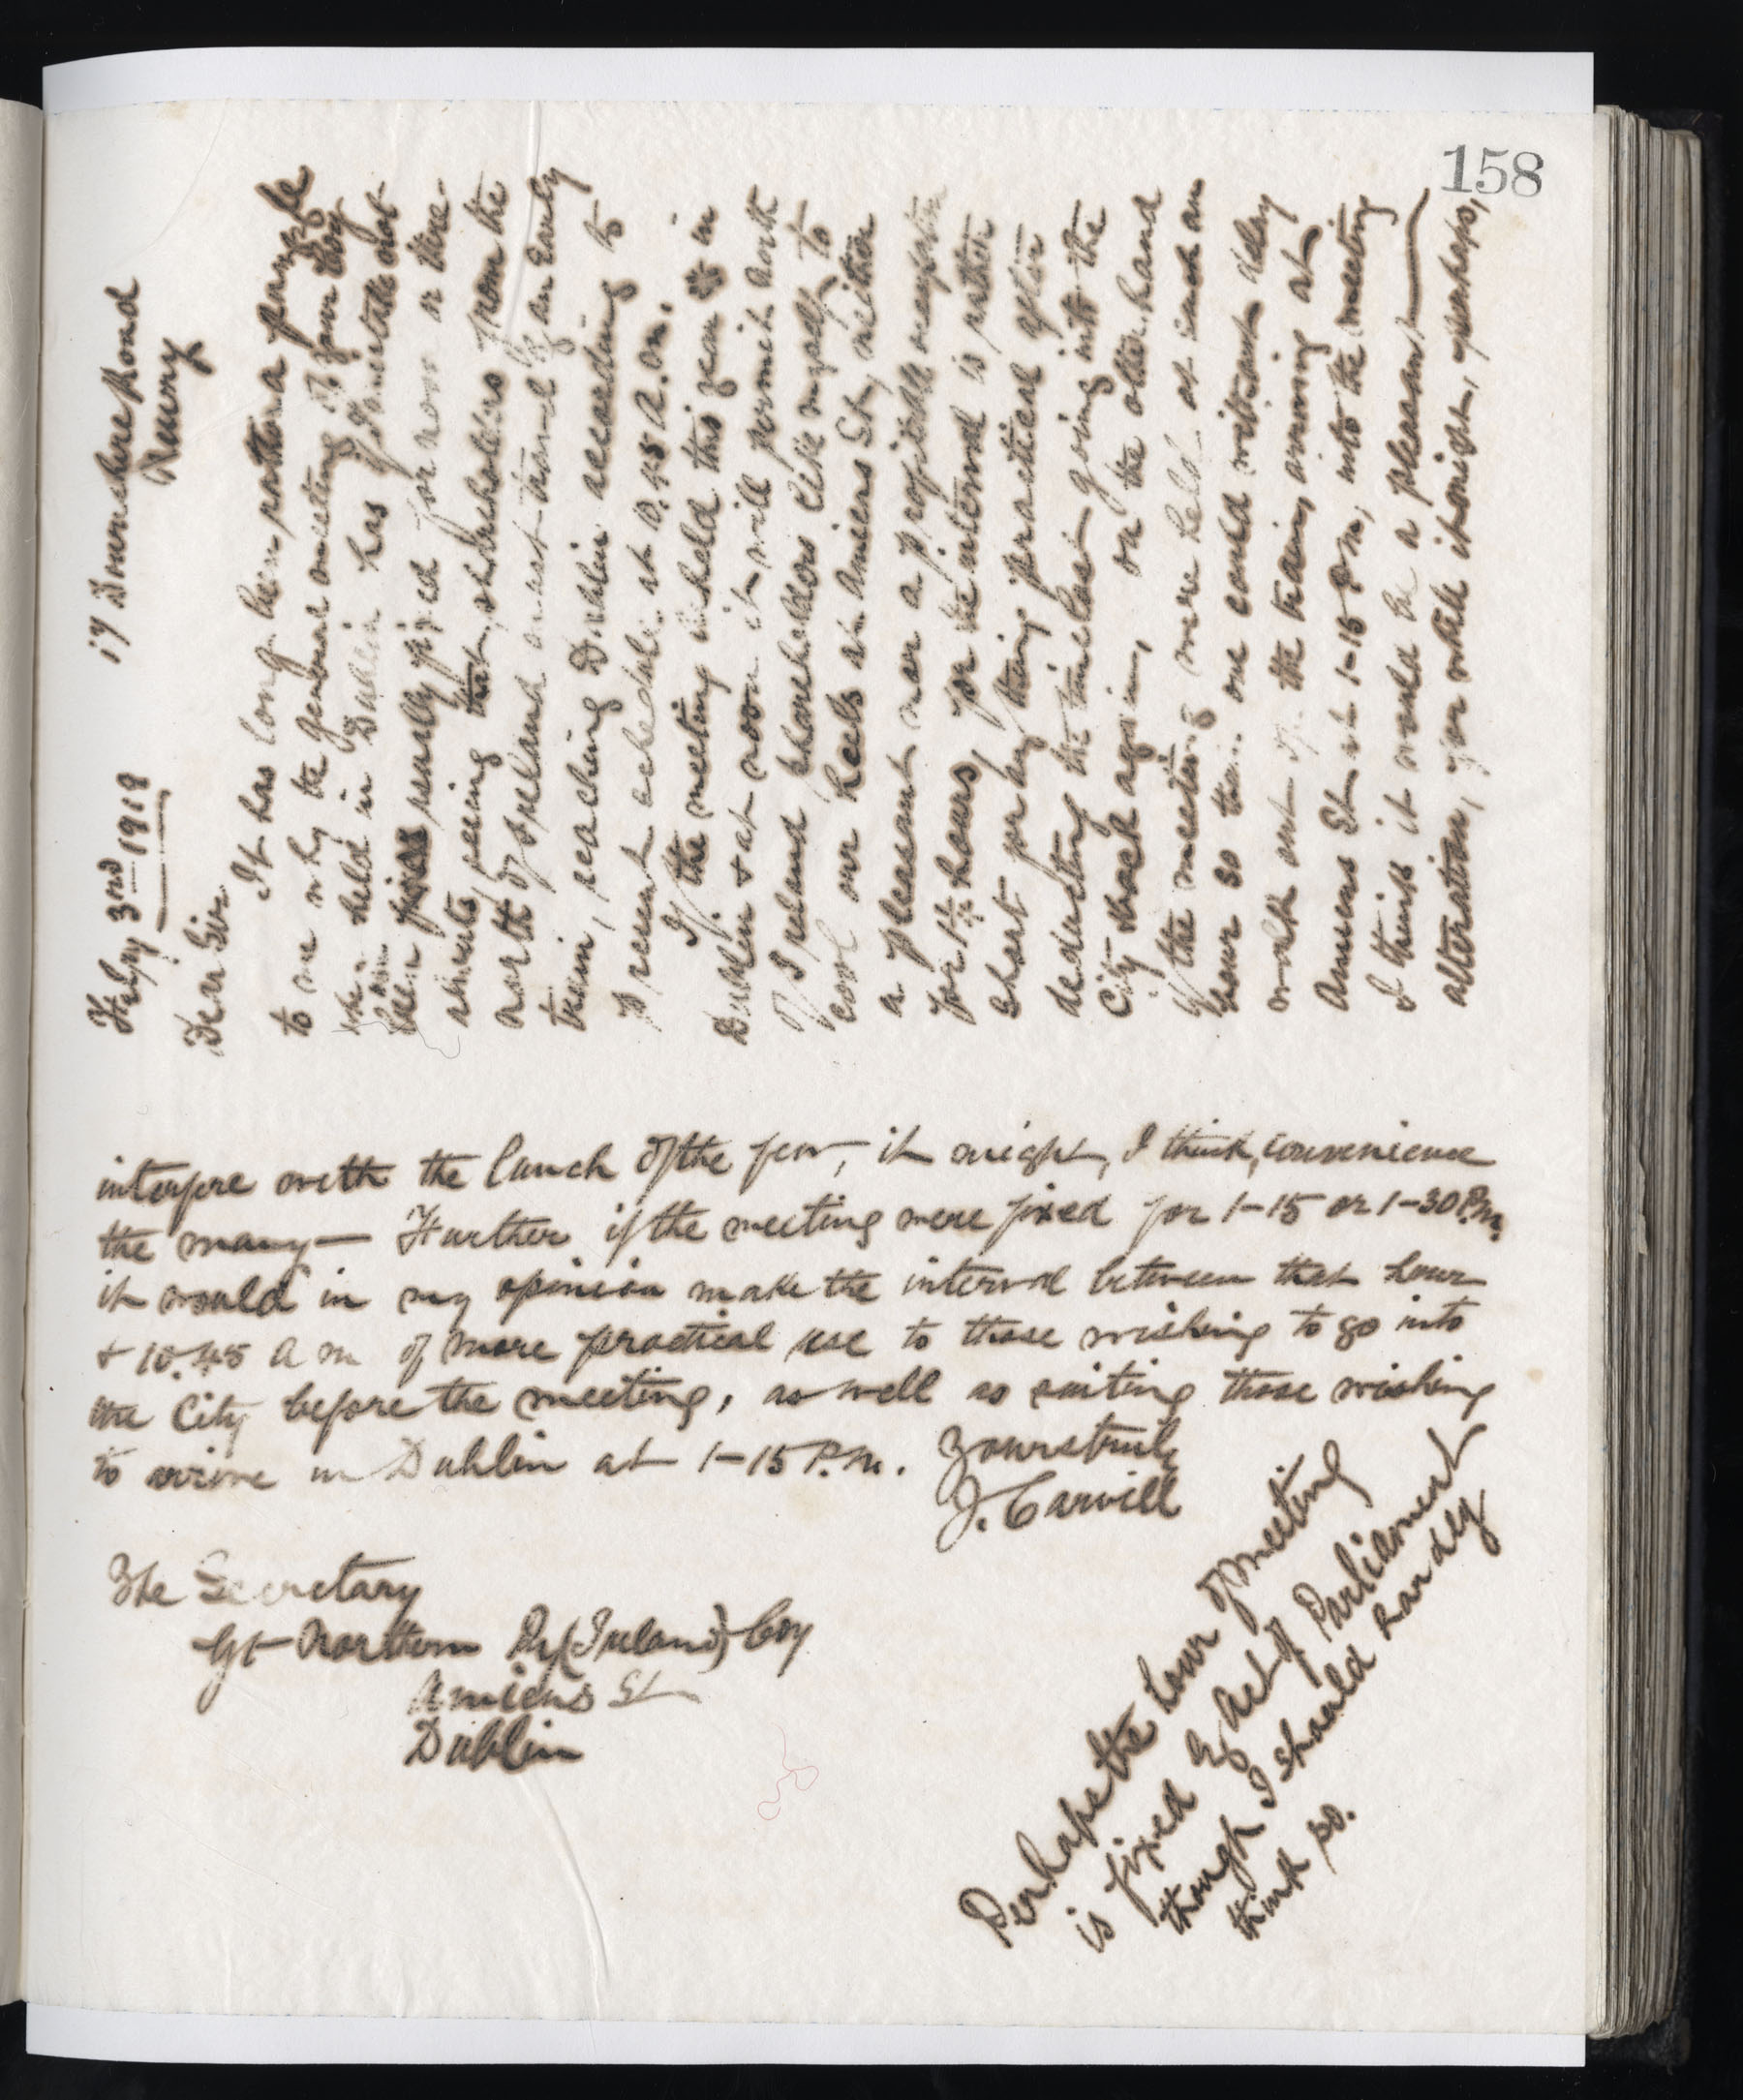 158
17 Downshire Road
Newry
Feby 3rd 1919
Dear Sir
It has long been rather a puzzle
to me why the general meeting of your Coy
when held in Dublin has
been usually fixed for noon or there-
abouts seeing that shareholders from the
north of Ireland must travel by an early
train, reaching Dublin according to
present schedule at 10.45 A.m.
If the meeting is held this year in
Dublin & at noon it will permit north
of Ireland shareholders like myself to
cool our heels at Amiens St, neither
a pleasant nor a profitable occupation
for 1¼ hours for the interval is rather
short for anything practical after
deducting the time lost going into the
City & back again, on the other hand
if the meeting were held at such an
hour so that one could without delay
walk out of the train, arriving at
Amiens St at 1-15 Pm, into the meeting
I think it would be a pleasant
alteration, for while it might, perhaps,
interfere with the lunch of the few, it might, I think, convenience
the many — Further if the meeting were fixed for 1-15 or 1-30 P.m.
it would in my opinion make the interval between that hour
& 10.45 A m of more practical use to those wishing to go into
the City before the meeting, as well as suiting those wishing
to arrive in Dublin at 1-15 P.m. Yours truly
J. Carvill
The Secretary
Gt Northern Ry (Ireland) Coy
Amiens St
Dublin
Perhaps the hour of meeting
is fixed by Act of Parliament
though I should hardly
think so.